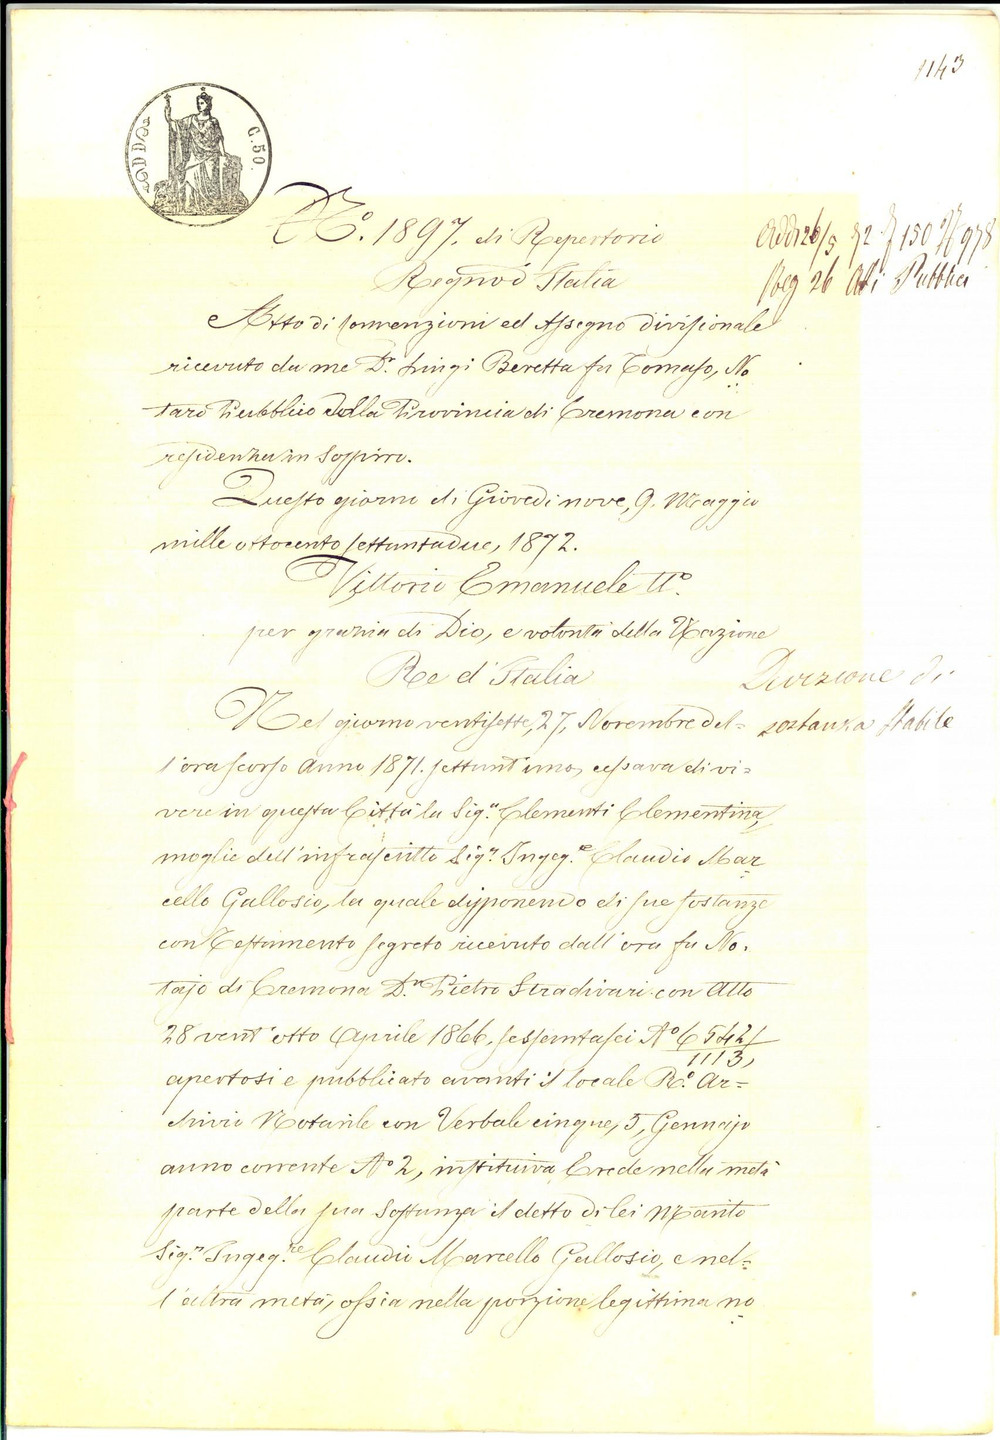 1143
C. 50.
N.° 1897. di Repertorio
Regno d'Italia
Addi 26/5 72 150 978
Reg 26 Atti Pubblici
Atto di Convenzioni ed Assegno divisionale
ricevuto da me D.r Luigi Beretta fu Tomaso, No
taro Pubblico della Provincia di Cremona con
residenza in Sospiro.
Questo giorno di Giovedi nove, 9. Maggio
mille ottocento settantadue, 1872.
Vittorio Emanuele II°.
per grazia di Dio, e volontà della Nazione
Re d'Italia
Divizione di
sostanza stabile
Nel giorno ventisette, 27, Novembre del=
l'ora scorso anno 1871. settant'uno, cessava di vi=
vere in questa Città la Sig.a Clementi Clementina,
moglie dell'infrascritto Sig.r Ingeg.e Claudio Mar
cello Gallosio, la quale disponendo di sue sostanze
con Testamento segreto ricevuto dall'ora fu No.
tajo di Cremona D.r Pietro Stradivari con Atto
28 vent'otto Aprile 1866. sessantasei N° 6542/
1113,
apertosi e pubblicato avanti il locale R.° Ar=
chivio Notarile con Verbale cinque, 5, Gennajo
anno corrente N° 2, instituiva Erede nella metà
parte della sua Sostanza il detto di lei Marito
Sig.r Ingeg.re Claudio Marcello Gallosio, e nel=
l'altra metà, ossia nella porzione legittima no